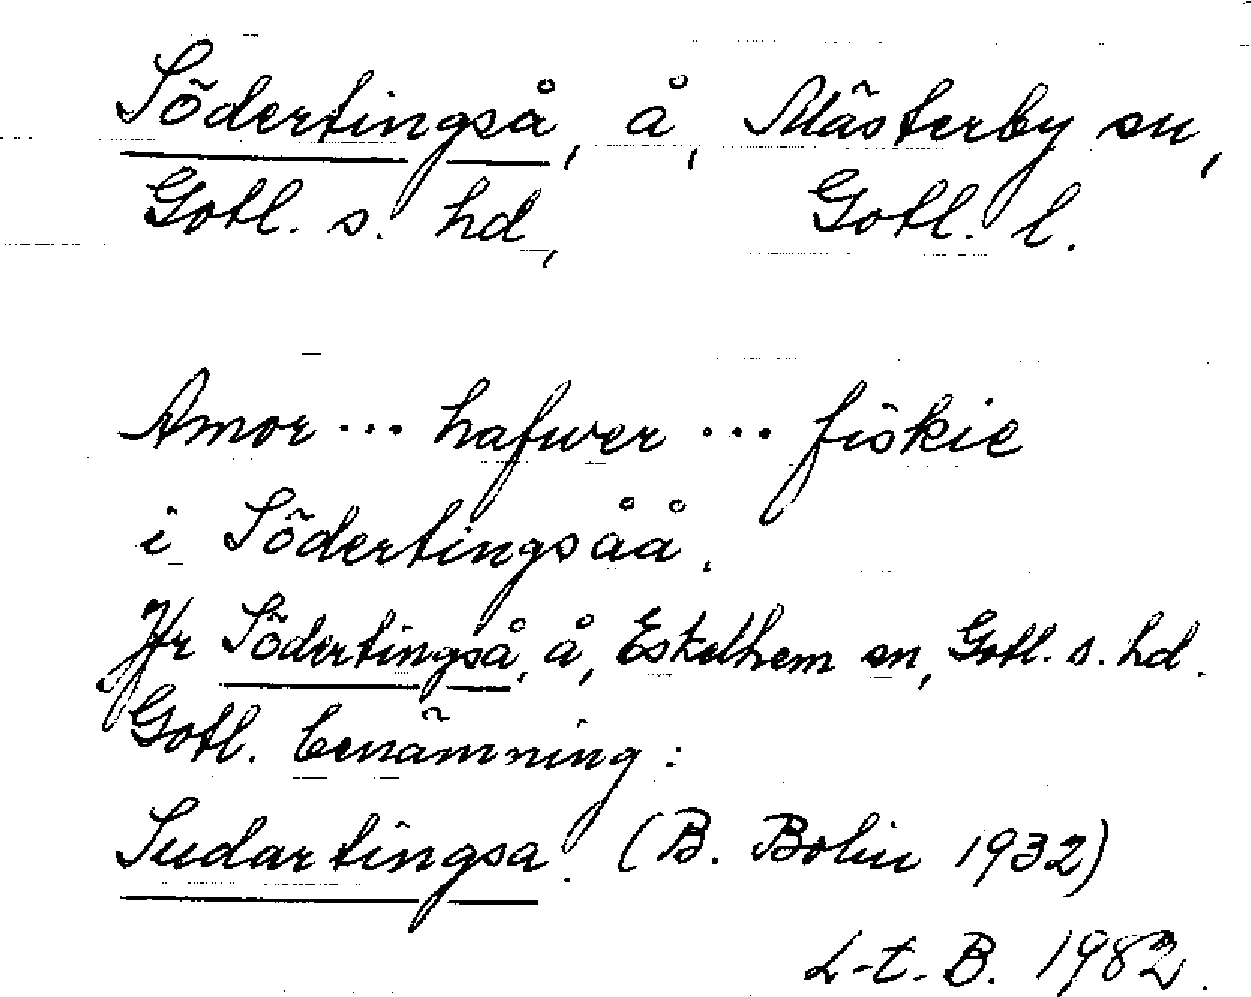 Södertingså, å, Mästerby sn,
Gotl. s. hd, Gotl. l.
Amor ... hafwer ... fiskie
i Södertingsåå.
Jfr Södertingså, å, Eskelhem sn, Gotl. s. hd.
Gotl. benämning:
Sudartingsa. (B. Bolin 1932)
L-t. B. 1982.